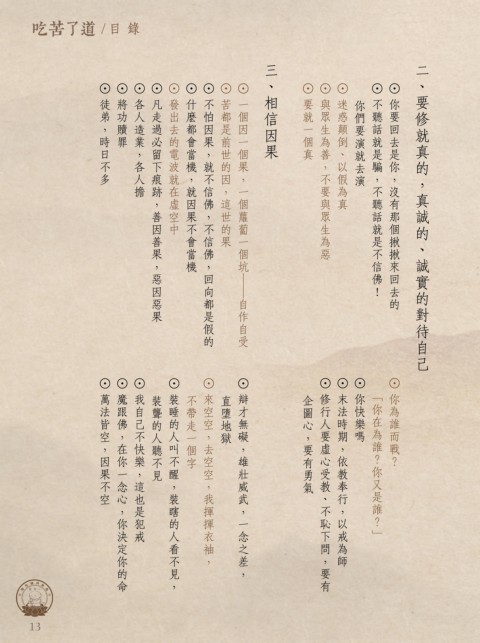 吃苦了道/目錄
二、要修就真的,真誠的、誠實的對待自己
⊙你要回去是你,沒有那個揪揪來回去的
⊙不聽話就是騙,不聽話就是不信佛!
你們要演就去演
⊙迷惑顛倒、以假為真
⊙與眾生為善,不要與眾生為惡
⊙要就一個真
⊙你為誰而戰?
「你在為誰?你又是誰?」
⊙你快樂嗎
⊙末法時期,依教奉行,以戒為師
⊙修行人要虛心受教、不恥下問,要有
企圖心,要有勇氣
三、相信因果
⊙一個因一個果,一個蘿蔔一個坑——自作自受
⊙苦都是前世的因,這世的果
⊙不怕因果,就不信佛,不信佛,回向都是假的
⊙什麼都會當機,就因果不會當機
⊙發出去的電波就在虛空中
⊙凡走過必留下痕跡,善因善果,惡因惡果
⊙各人造業,各人擔
⊙將功贖罪
⊙徒弟,時日不多
⊙辯才無礙,雄壯威武,一念之差,
直墮地獄
⊙來空空,去空空,我揮揮衣袖,
不帶走一個字
⊙裝睡的人叫不醒,裝瞎的人看不見,
裝聾的人聽不見
⊙我自己不快樂,這也是犯戒
⊙魔跟佛,在你一念心,你決定你的命
⊙萬法皆空,因果不空
13